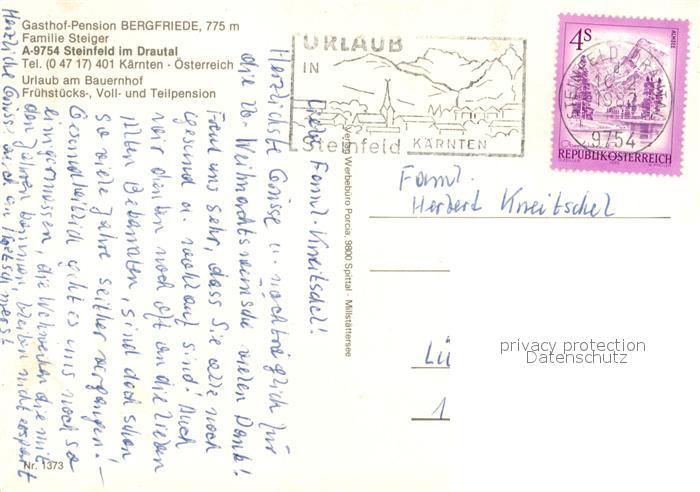 Gasthof-Pension BERGFRIEDE, 775 m
Familie Steiger
A-9754 Steinfeld im Drautal
Tel. (0 47 17) 401 Kärnten - Österreich
Urlaub am Bauernhof
Frühstücks-, Voll- und Teilpension
URLAUB
IN
Steinfeld KÄRNTEN
4S
ALMSEE
9754
REPUBLIK ÖSTERREICH
Liebe Faml. Kneitschel!
Herzlichste Grüsse u. nachträglich für
die lb. Weihnachtswünsche vielen Dank!
Freut uns sehr, dass Sie alle noch
gesund u. wohlauf sind! Auch
wir denken noch oft an die lieben
alten Bekannten, sind doch schon
so viele Jahre seither vergangen! –
Gesundheitlich geht es uns noch so
einigermassen, die Wehwehen die mit
den Jahren kommen, bleiben nicht erspart
Herzliche Grüsse auch an
Verlag Werbebüro Porcia, 9800 Spittal - Millstättersee
Faml.
Herbert Kneitschel
Lü
1
privacy protection
Datenschutz
Nr. 1373